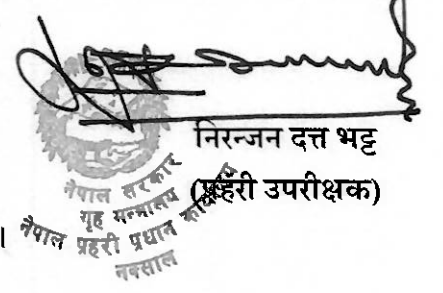 निरन्जन दत्त भट्ट
(प्रहरी उपरीक्षक)
नेपाल सरकार
गृह मन्त्रालय
नेपाल प्रहरी प्रधान कार्यालय
नक्साल
।